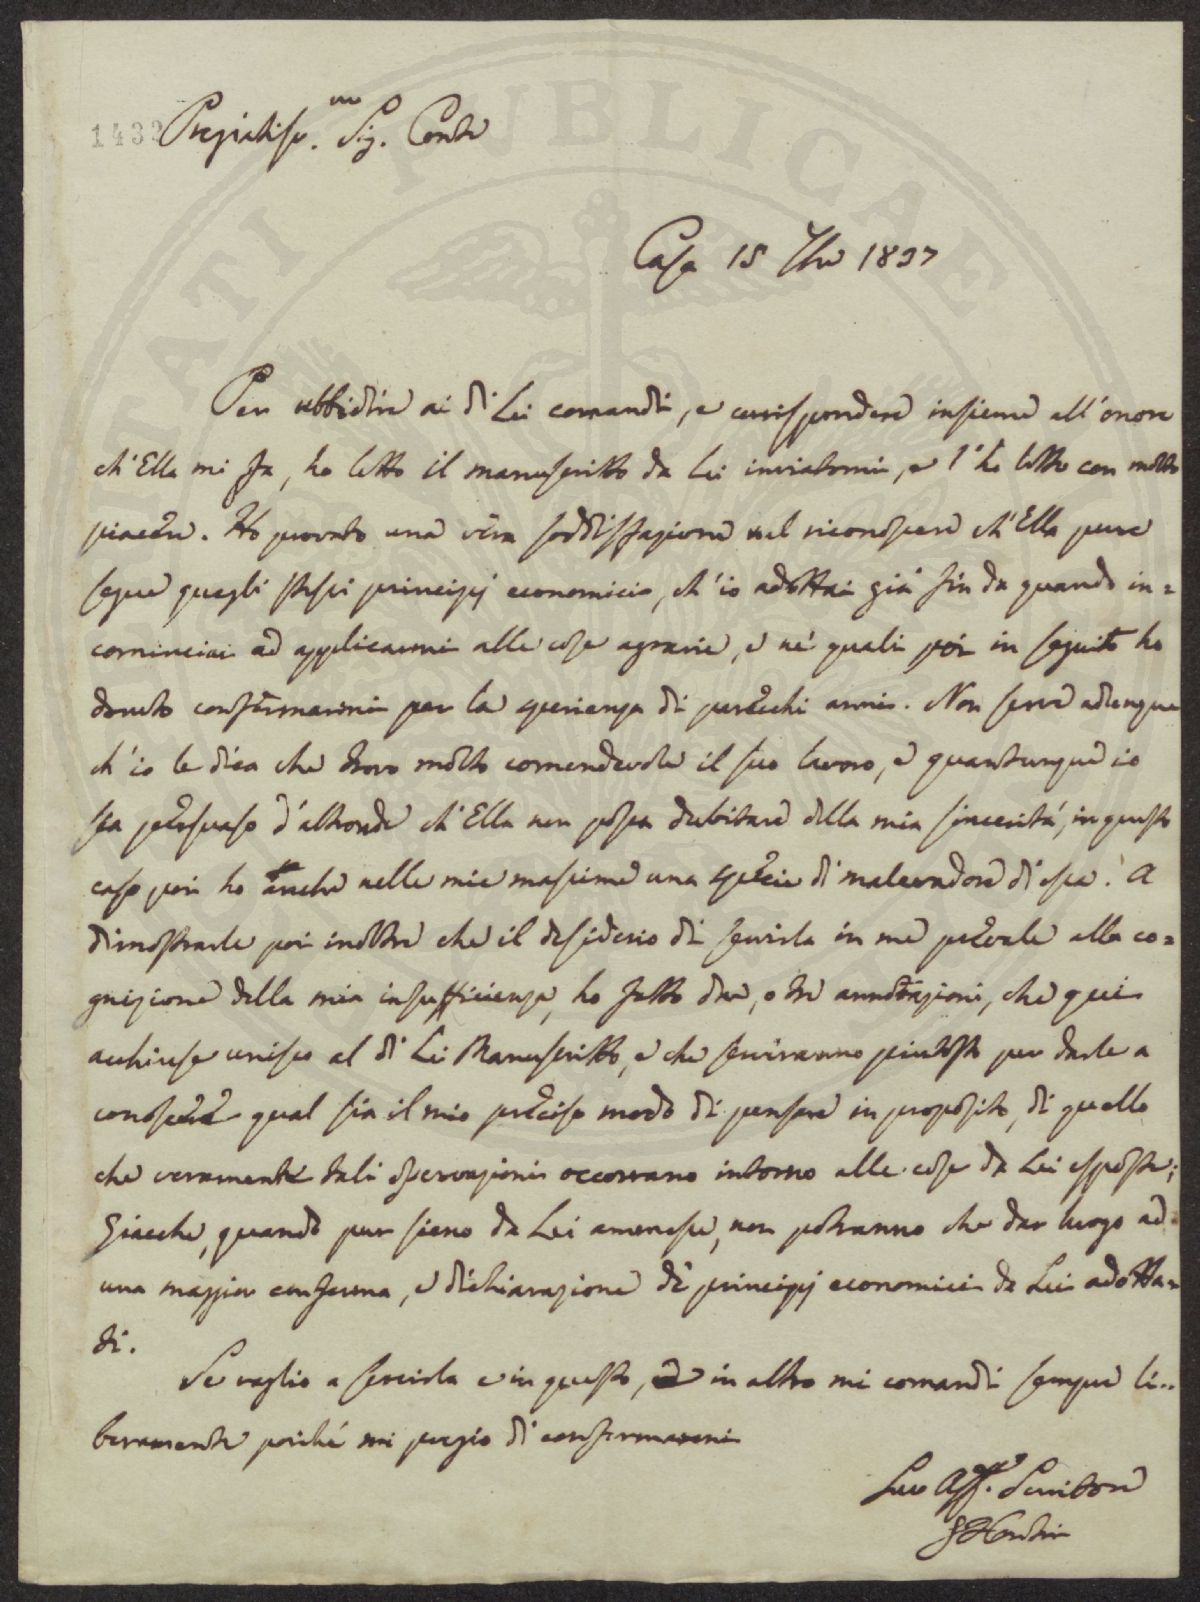 1432
Pregiatiss.mo Sig. Conte
Casa 15 7bre 1837
Per ubbidire ai di Lei comandi, e corrispondere insieme all'onore
ch'Ella mi fa, ho letto il manuscritto da Lei inviatomi, e l'ho letto con molto
piacere. Ho provato una vera soddisfazione nel riconoscere ch'Ella pure
segue quegli stessi principj economici, ch'io adottai già fin da quando in=
cominciai ad applicarmi alle cose agrarie, e ne' quali poi in seguito ho
dovuto confermarmi per la sperienza di parecchi anni. Non serve adunque
ch'io le dica che trovo molto comendevole il suo lavoro, e quantunque io
sia persuaso d'altronde ch'Ella non possa dubitare della mia sincerità, in questo
caso poi ho anche nelle mie massime una specie di malevadore di essa. A
dimostrarle poi inoltre che il desiderio di servirla in me prevale alla co=
gnizione della mia insufficienza, ho fatto due, o tre annotazioni, che qui
acchiuse unisco al di Lei Manuscritto, e che serviranno piuttosto per darle a
conoscere qual sia il mio preciso modo di pensare in proposito, di quello
che veramente tali osservazioni occorrano intorno alle cose da Lei esposte;
Giacche, quando pur sieno da Lei ammesse, non potranno che dar luogo ad
una maggior conferma, e dichiarazione de' principj economici da Lei adotta=
ti.
Se vaglio a servirla e in questo, e in altro mi comandi sempre li=
beramente poiché mi pregio di confermarmi
Suo Aff. Servitore